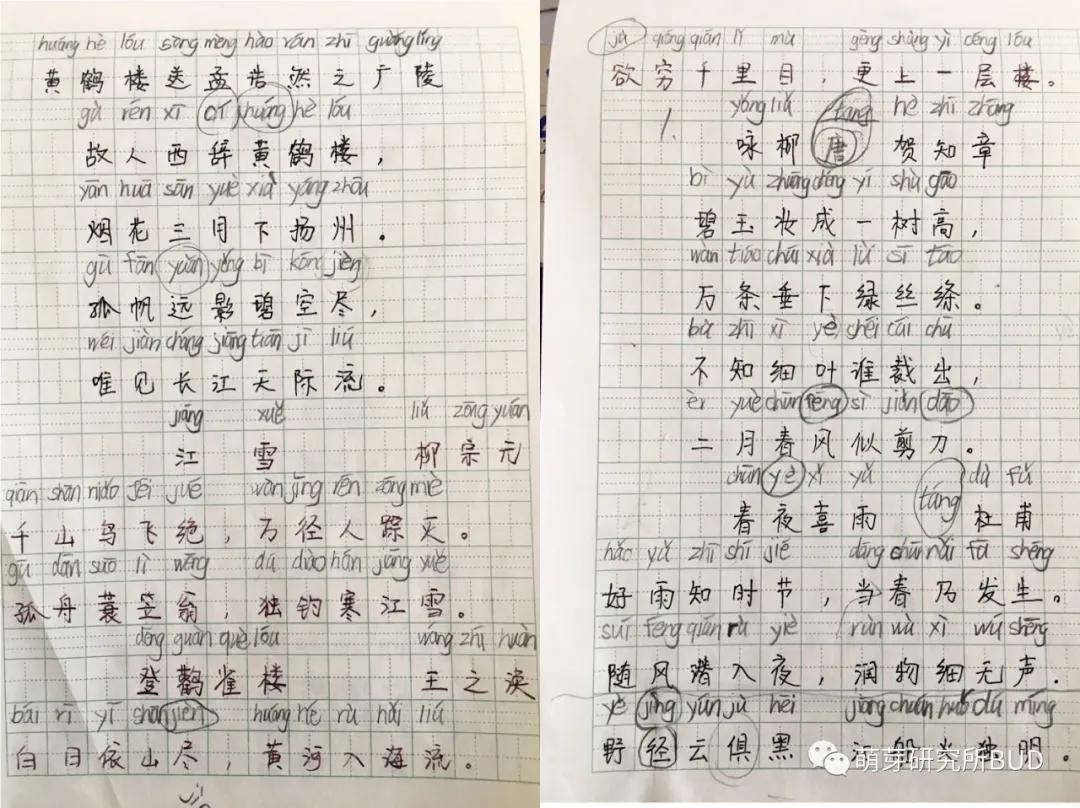 huáng hè lóu sòng mèng hào rán zhī guǎng líng
黄鹤楼送孟浩然之广陵
gù rén xī cí huáng hè lóu
故人西辞黄鹤楼，
yān huā sān yuè xià yáng zhōu
烟花三月下扬州。
gū fān yuǎn yǐng bì kōng jièn
孤帆远影碧空尽，
wéi jiàn cháng jiāng tiān jì liú
唯见长江天际流。
jiāng xuě liǔ zōng yuán
江雪 柳宗元
qiān shān niǎo fēi jué wàn jìng rén zōng miè
千山鸟飞绝，万径人踪灭。
gū dān suō lì wēng dú diào hán jiāng xuě
孤舟蓑笠翁，独钓寒江雪。
dēng guàn què lóu wáng zhī huàn
登鹳雀楼 王之涣
bái rì yī shān jièn huáng hé rù hǎi liú
白日依山尽，黄河入海流。
yù qióng qiān lǐ mù gèng shàng yì céng lóu
欲穷千里目，更上一层楼。
yǒng liǔ táng hè zhī zhāng
咏柳 唐 贺知章
bì yù zhuāng chéng yī shù gāo
碧玉妆成一树高，
wàn tiáo chuí xià lǜ sī tāo
万条垂下绿丝绦。
bù zhī xì yè shéi cái chū
不知细叶谁裁出，
èr yuè chūn fēng sì jiǎn dāo
二月春风似剪刀。
chūn yè xǐ yǔ táng dù fǔ
春夜喜雨 杜甫
hǎo yǔ zhī shí jié dāng chūn nǎi fā shēng
好雨知时节，当春乃发生。
suí fēng qián rù yè rùn wù xì wú shēng
随风潜入夜，润物细无声.
yě jìng yún jù hēi jiāng chuán huǒ dú míng
野径云俱黑
萌芽研究所BUD